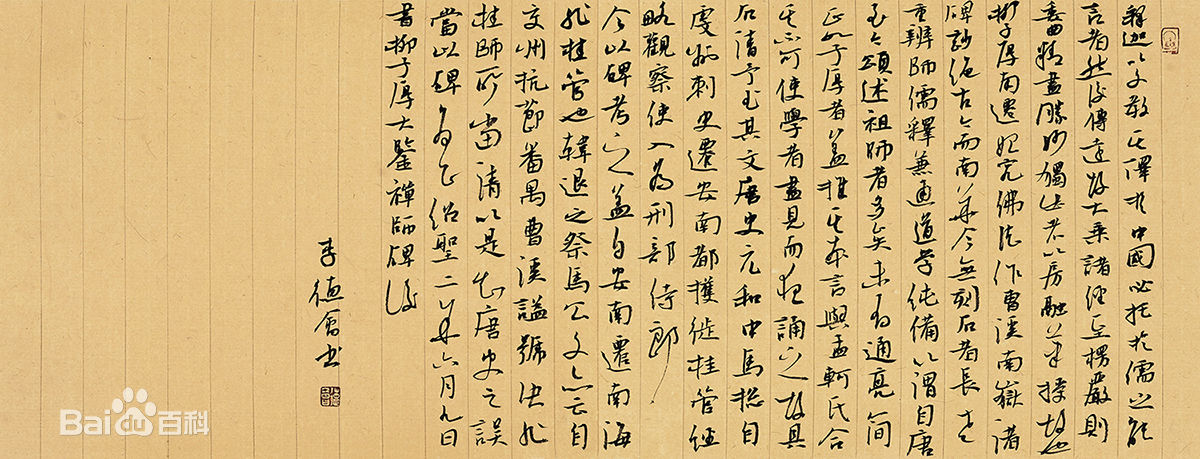 釋迦以文教其譯於中國必托於儒之能
言者然後傳遠故大乘諸經至楞嚴則
委曲精盡勝妙獨出者以房融筆授故也
柳子厚南遷始究佛法作曹溪南嶽諸
碑妙絕古今而南華今無刻石者長老
重辨師儒釋兼通道學純備以謂自唐
至今頌述祖師者多矣未有通亮簡
正如子厚者蓋推其本言與孟軻氏合
其不可使學者盡見而夜誦之故具
石請予書其文唐史元和中馬摠自
虔州刺史遷安南都獲徙桂管經
略觀察使入為刑部侍郎
今以碑考之蓋自安南遷南海
非桂管也韓退之祭馬公文亦云自
交州抗節番禺曹溪謚號決非
桂師所當請以是知唐史之誤
當以碑為正紹聖二年六月九日
書柳子厚大鑒禪師碑後
李德會書
Bai百科